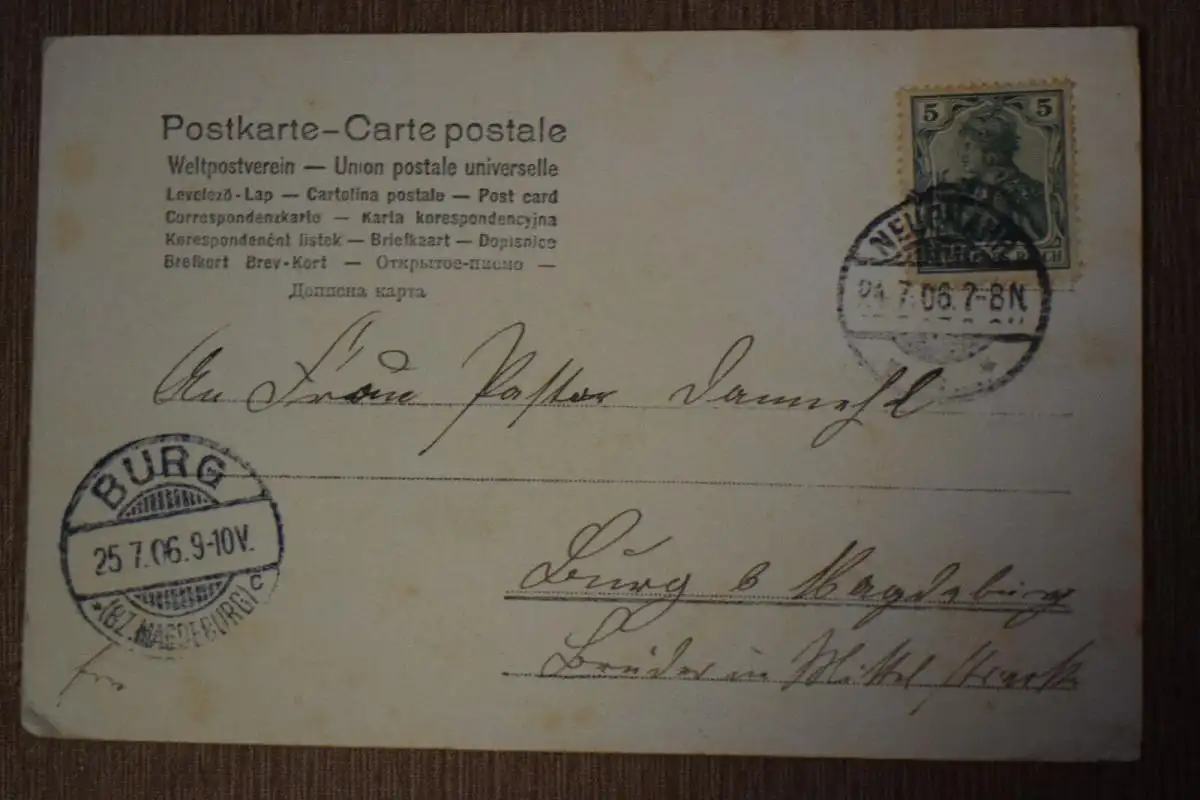 Postkarte - Carte postale
Weltpostverein — Union postale universelle
Levelező-Lap — Cartolina postale — Post card
Correspondenzkarte — Karta korespondencyjna
Korespondenční listek — Briefkaart — Dopisnice
Brefkort Brev-Kort — Открытое-письмо —
Дописна карта
5 5
REICH
24.7.06.7-8N.
An Frau Pastor Dannehl
BURG
25.7.06.9-10V.
*(BZ. MAGDEBURG) c
Burg b Magdeburg
Brüder in Mittel